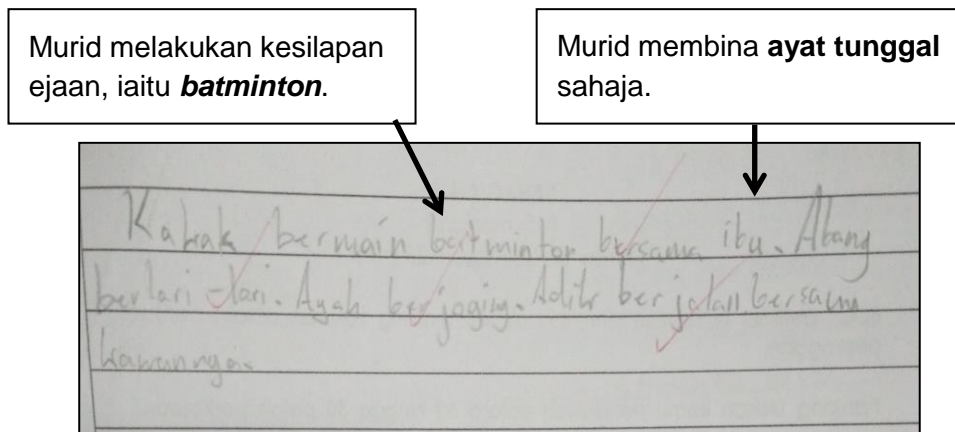 Murid melakukan kesilapan
ejaan, iaitu batminton.
Murid membina ayat tunggal
sahaja.
Kakak bermain batminton bersama ibu. Abang
berlari-lari. Ayah berjoging. Adik berjalan bersama
kawannya.